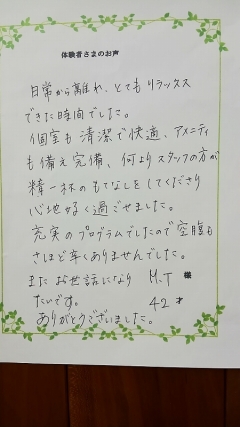 体験者さまのお声
日常から離れ、とてもリラックス
できた時間でした。
個室も清潔で快適、アメニティ
も備え完備、何よりスタッフの方が
精一杯のもてなしをしてくださり
心地好く過ごせました。
充実のプログラムでしたので空腹も
さほど辛くありませんでした。
またお世話になり M.T 様
たいです。 42 才
ありがとうございました。